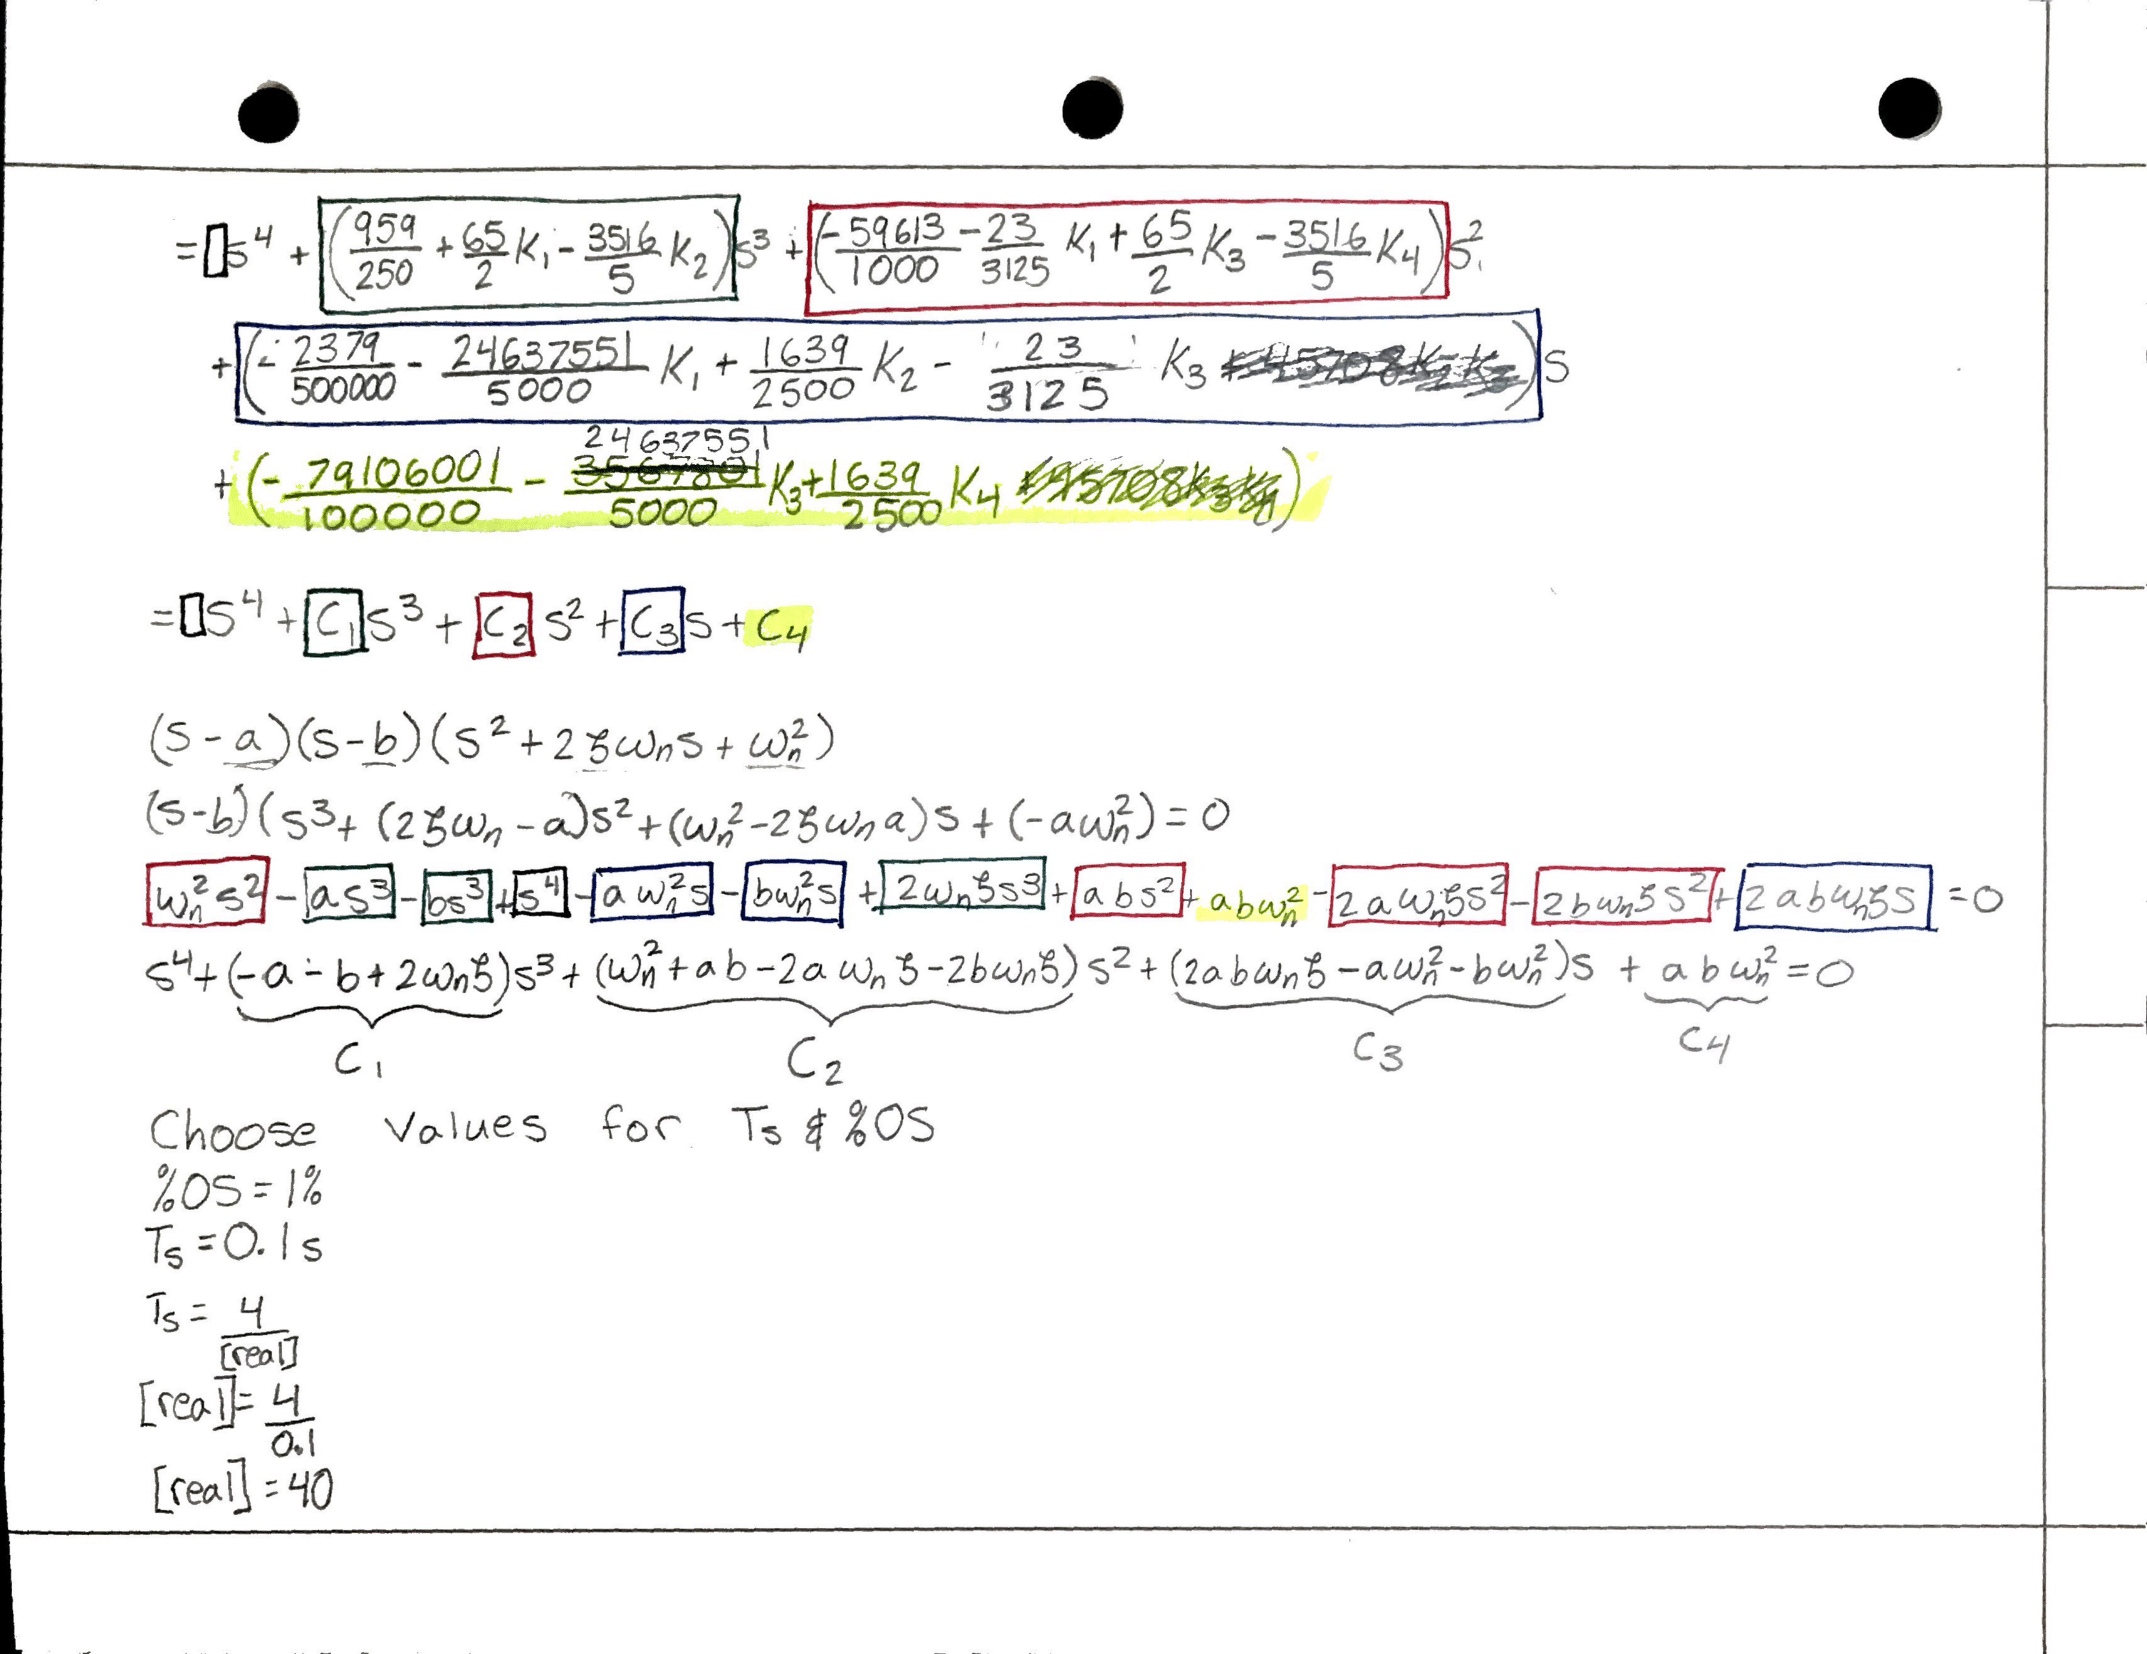 = s⁴ + (959/250 + 65/2 K₁ - 3516/5 K₂) s³ + (-59613/1000 - 23/3125 K₁ + 65/2 K₃ - 3516/5 K₄) s²
+ (-2379/500000 - 24637551/5000 K₁ + 1639/2500 K₂ - 23/3125 K₃) s
+ (-79106001/100000 - 24637551/5000 K₃ + 1639/2500 K₄)
= s⁴ + C₁ s³ + C₂ s² + C₃ s + C₄
(s - a)(s - b)(s² + 2ζωₙs + ωₙ²)
(s - b)(s³ + (2ζωₙ - a)s² + (ωₙ² - 2ζωₙa)s + (-aωₙ²) = 0
ωₙ²s² - as³ - bs³ + s⁴ - aωₙ²s - bωₙ²s + 2ωₙζs³ + abs² + abωₙ² - 2aωₙζs² - 2bωₙζs² + 2abωₙζs = 0
s⁴ + (-a - b + 2ωₙζ)s³ + (ωₙ² + ab - 2aωₙζ - 2bωₙζ)s² + (2abωₙζ - aωₙ² - bωₙ²)s + abωₙ² = 0
C₁ C₂ C₃ C₄
Choose values for Ts & %OS
%OS = 1%
Ts = 0.1s
Ts = 4/[real]
[real] = 4/0.1
[real] = 40